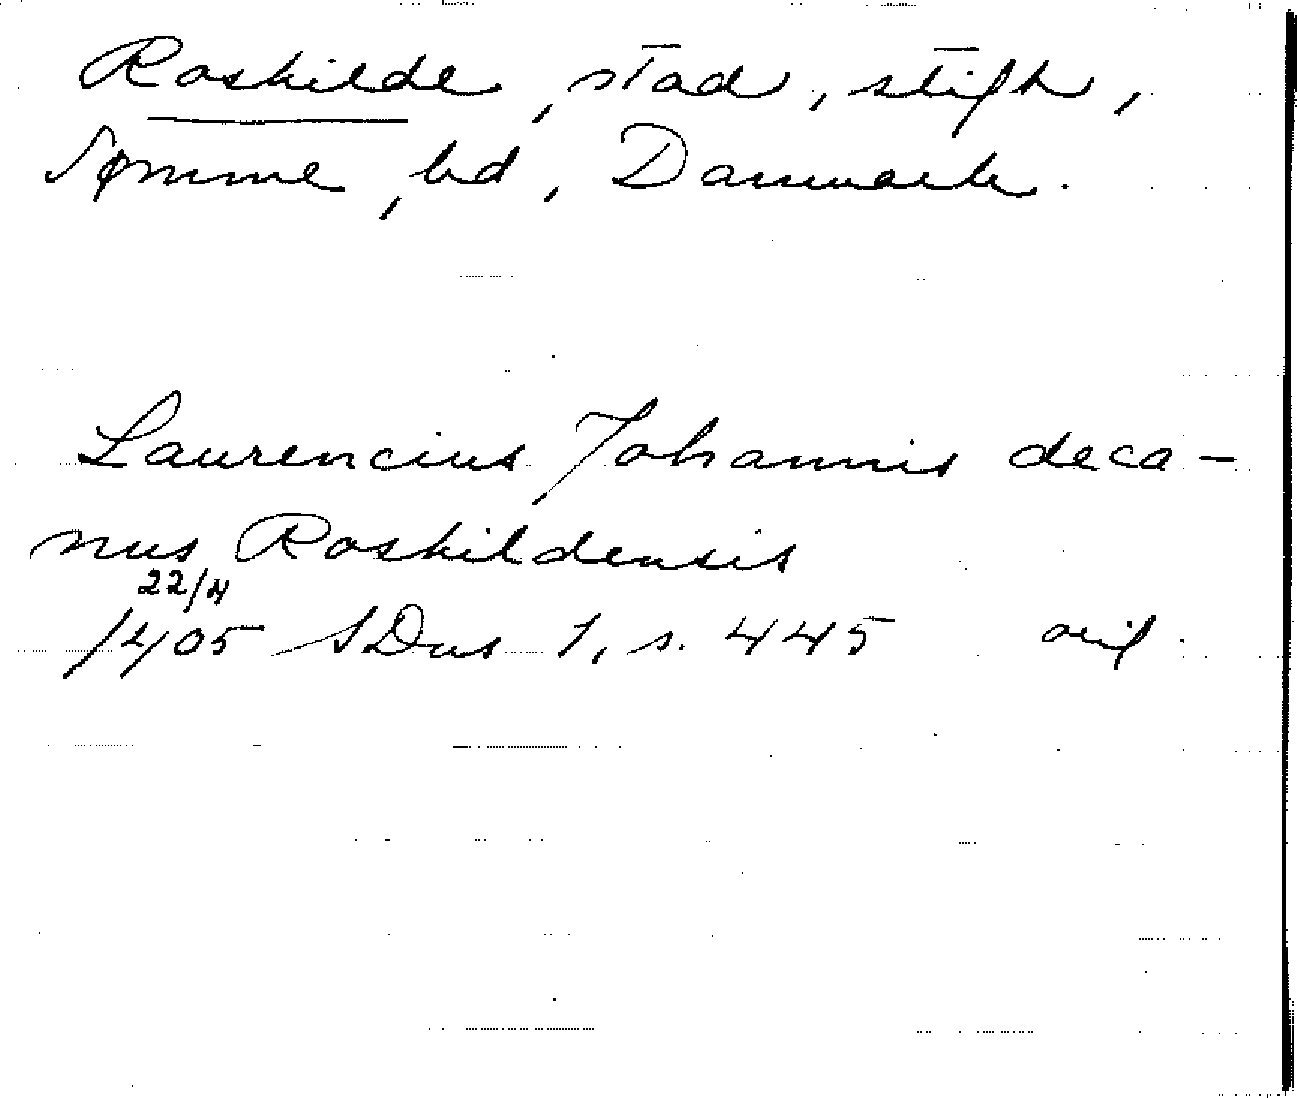 Roskilde, stad, stift,
Sømme, hd, Danmark.
Laurencius Johannis deca-
nus Roskildensis
22/4
1405 SDns 1, s. 445 orig.